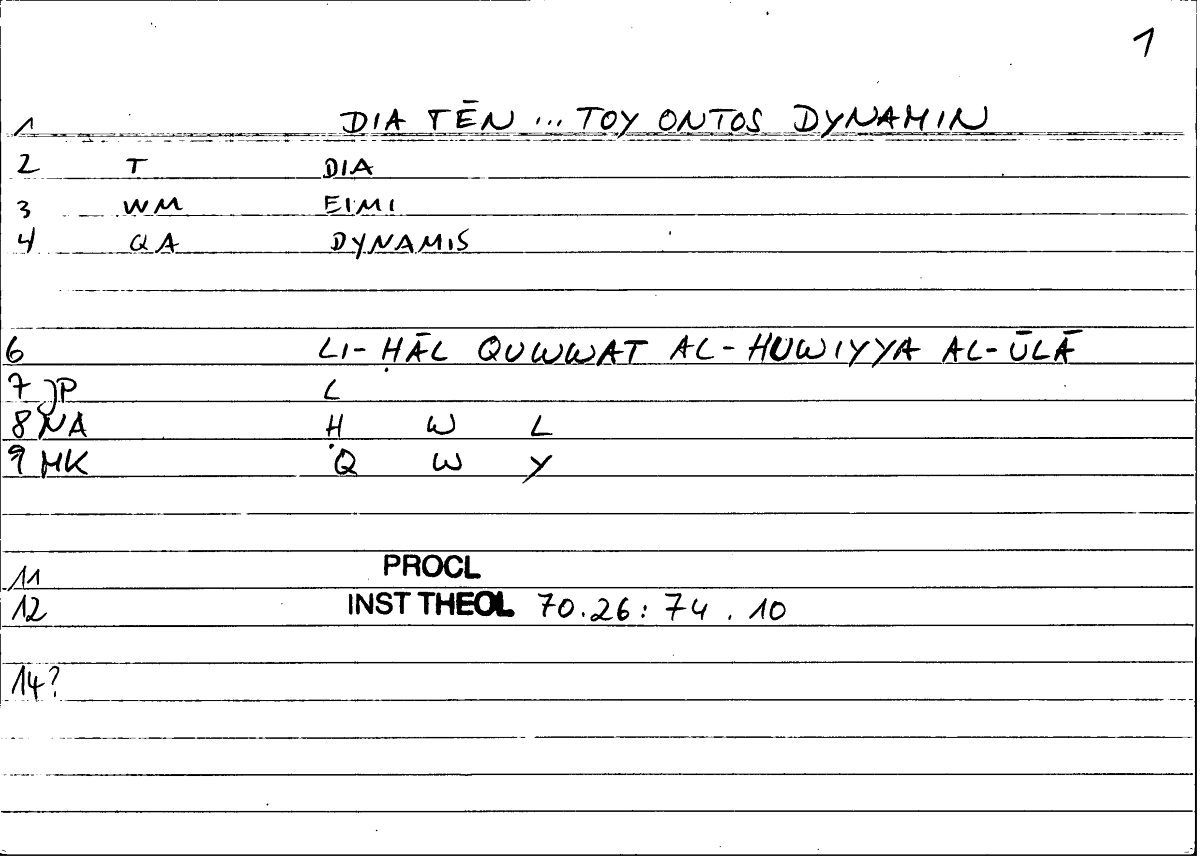 1
1 DIA TĒN ... TOY ONTOS DYNAMIN
2 T DIA
3 WM EIMI
4 QA DYNAMIS
6 LI-ḤĀL QUWWAT AL-HUWIYYA AL-ŪLĀ
7 JP L
8 NA Ḥ W L
9 MK Q W Y
11 PROCL
12 INST THEOL 70.26: 74.10
14?